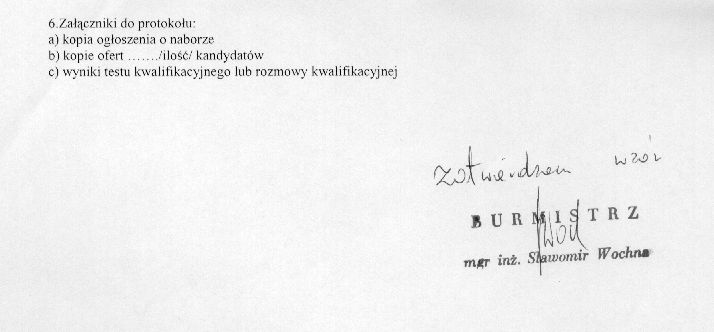 6.Załączniki do protokołu:
a) kopia ogłoszenia o naborze
b) kopie ofert ……./ilość/ kandydatów
c) wyniki testu kwalifikacyjnego lub rozmowy kwalifikacyjnej
zatwierdzam wzór
BURMISTRZ
mgr inż. Sławomir Wochna